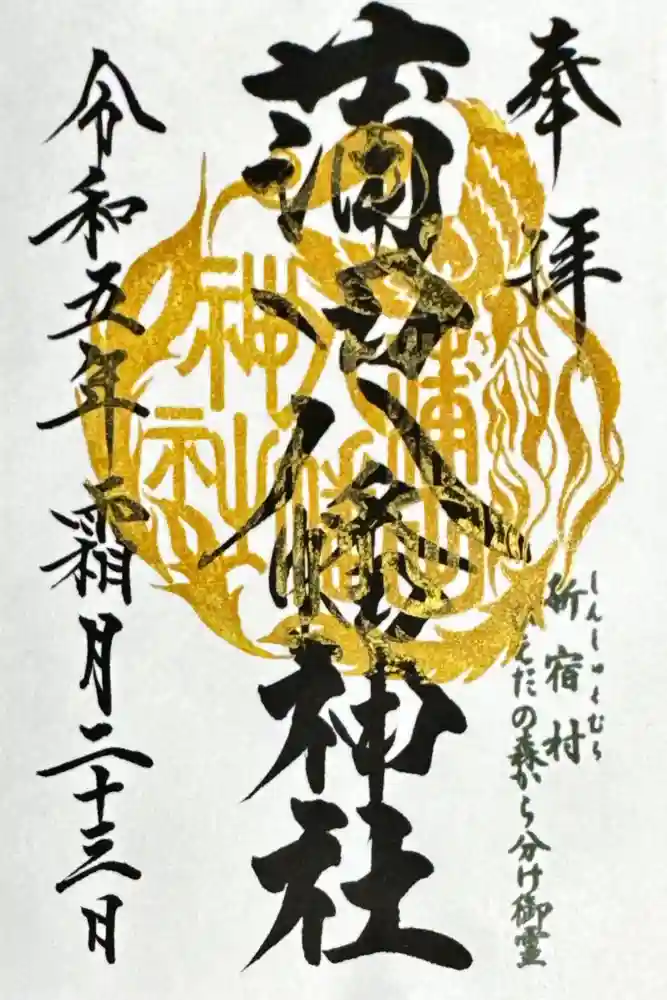 奉拝
蒲沼八幡神社
しんしゅくむら
新宿村
えだの森から分け御霊
令和五年霜月二十三日